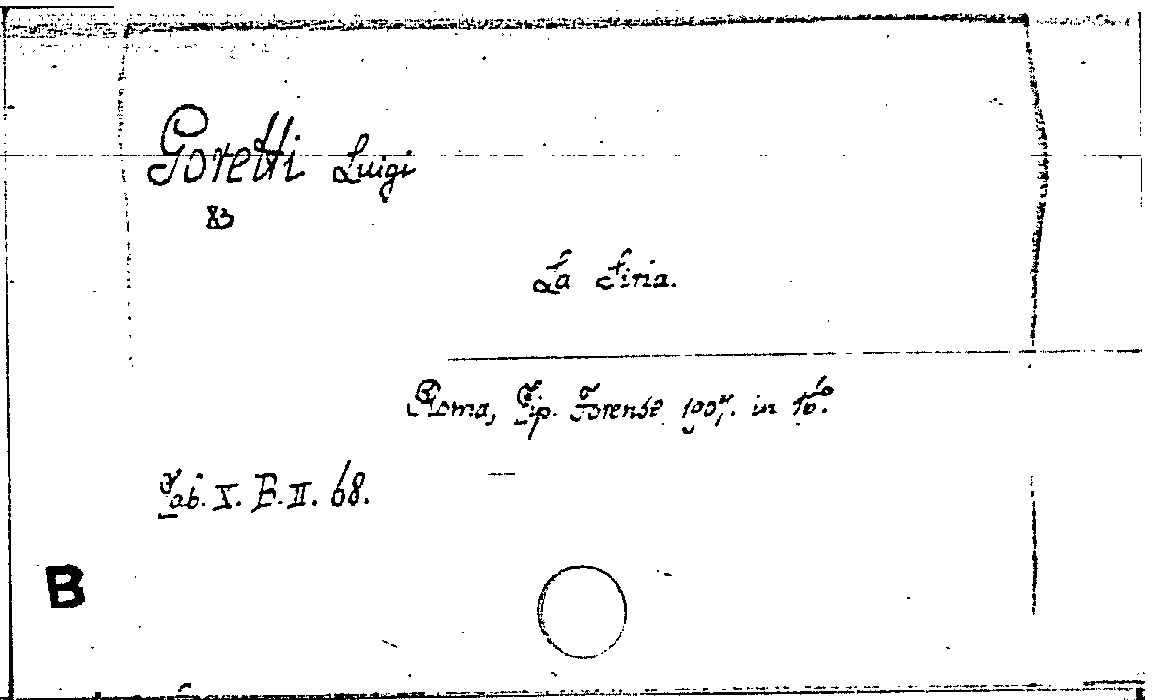 Goretti Luigi
La Siria.
Roma, Tip. Forense 1907. in 16º.
Tab. X. B. II. 68.
B